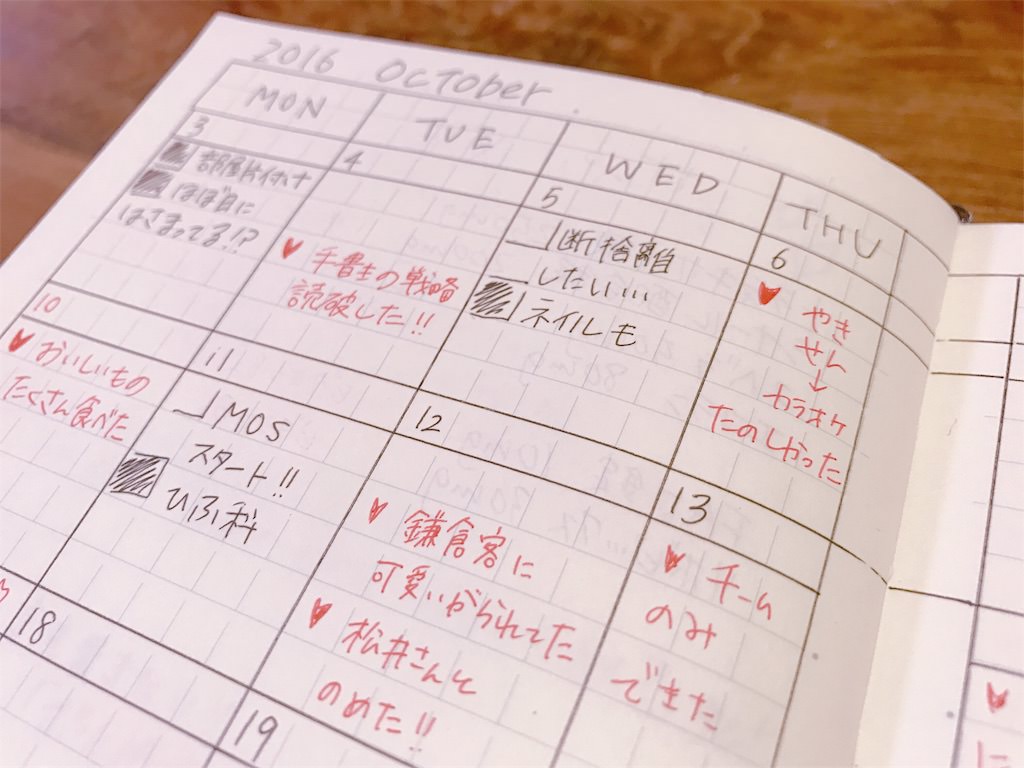 2016 October
MON
TUE
WED
THU
3
部屋片付け
ほぼ自に
はさまってる!?
4
手書きの戦略
読破した!!
5
断捨離
したい...
ネイルも
6
やき
せん
↓
カラオケ
たのしかった
10
おいしいもの
たくさん食べた
11
MOS
スタート!!
ひふ科
12
鎌倉客に
可愛いがられてた
松井さんと
のめた!!
13
チーム
のみ
できた
18
19
に